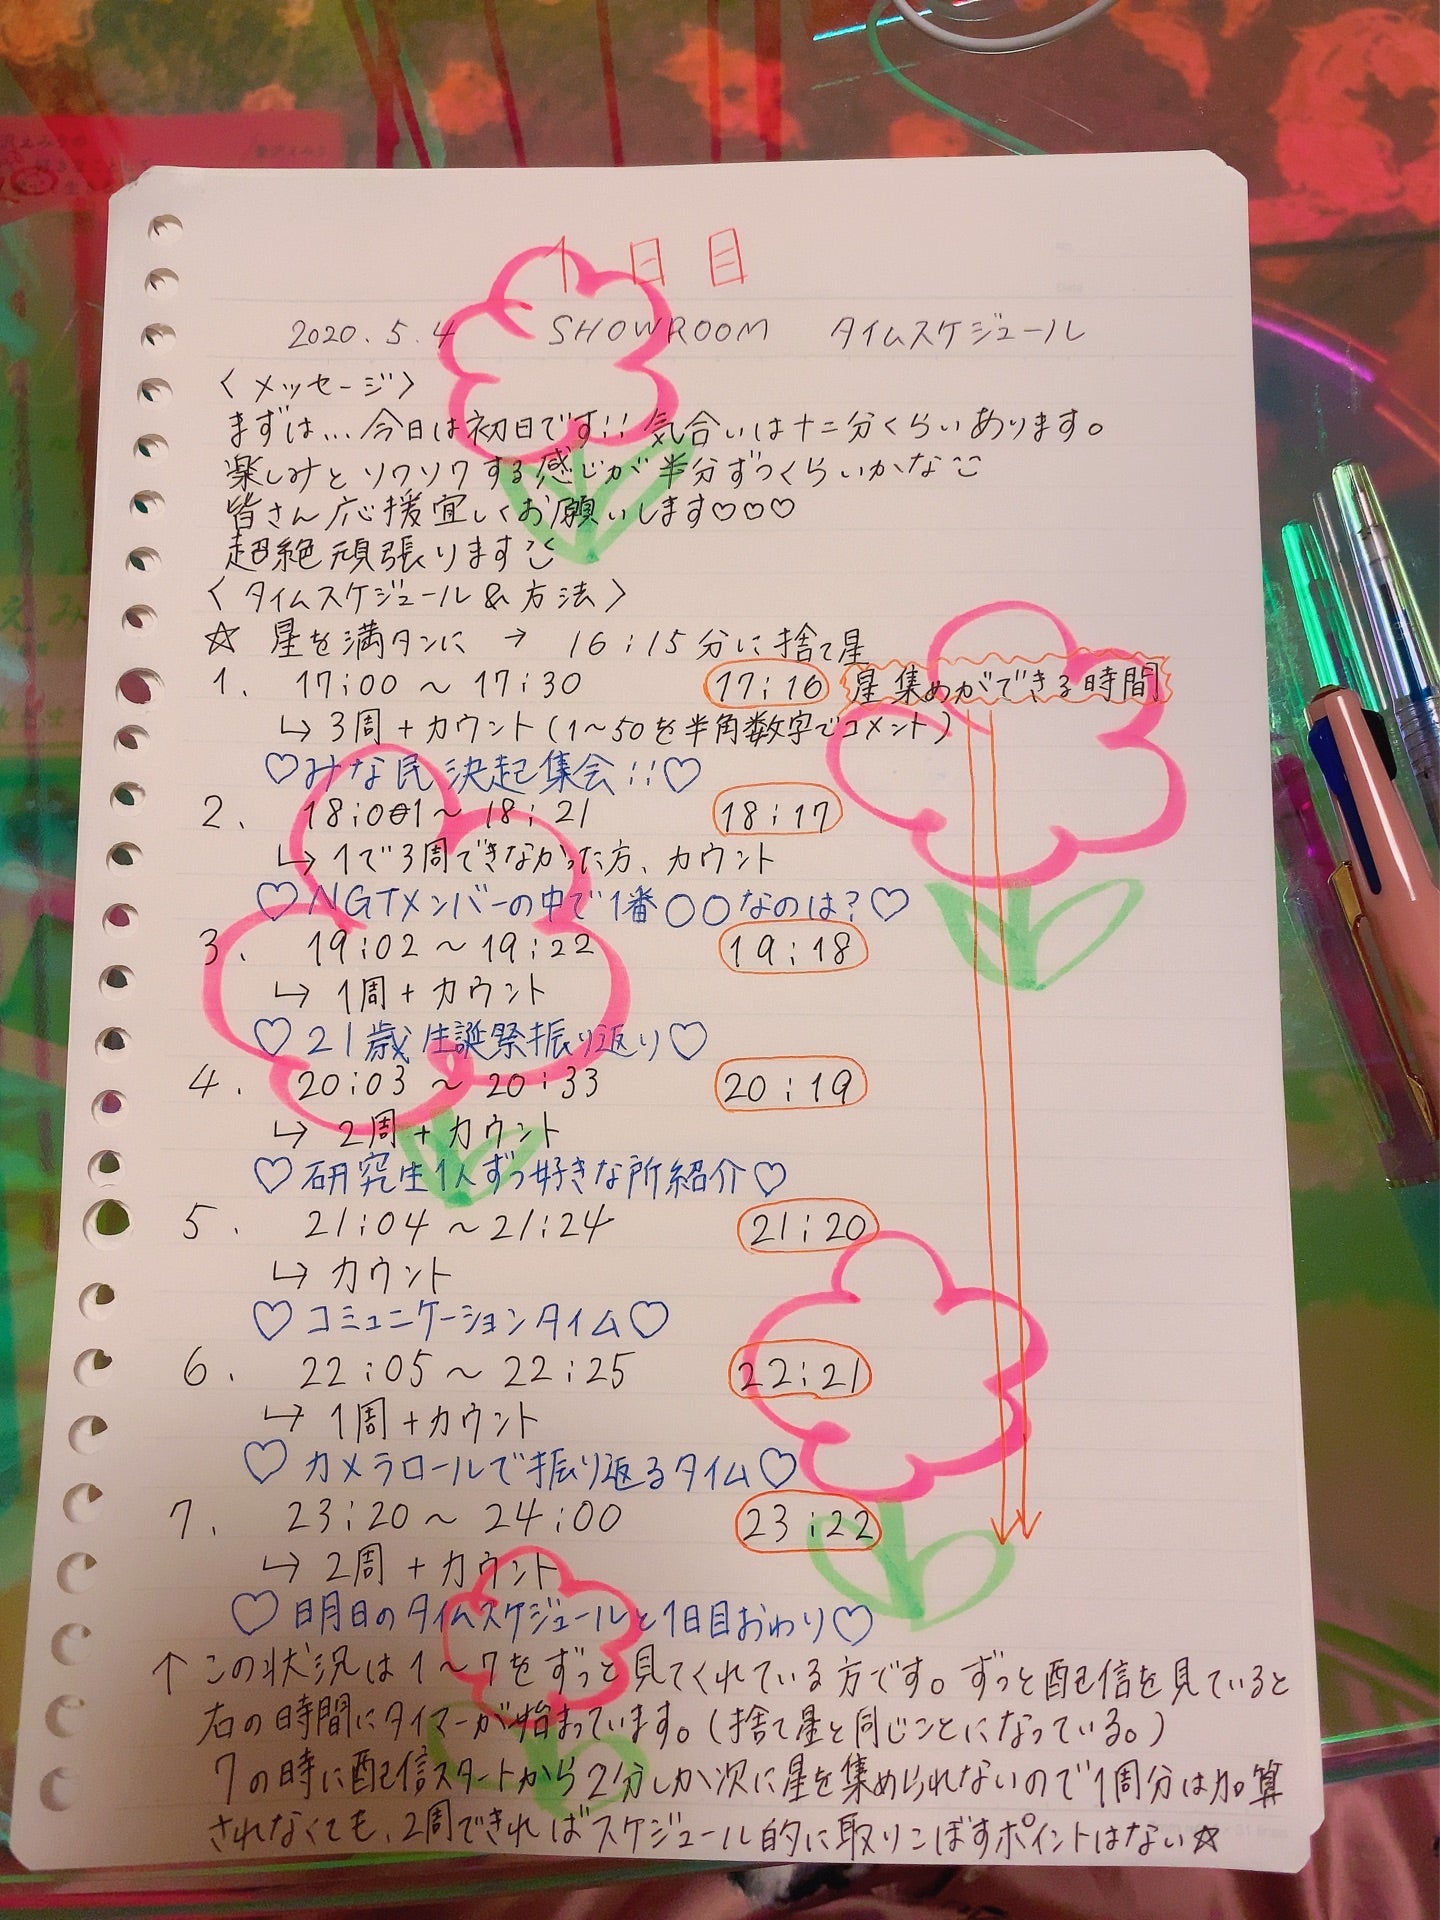 1日目
2020.5.4 SHOWROOM タイムスケジュール
〈メッセージ〉
まずは…今日は初日です!! 気合いは十二分くらいあります。
楽しみとソワソワする感じが半分ずつくらいかな
皆さん応援宜しくお願いします♡♡♡
超絶頑張ります
〈タイムスケジュール&方法〉
☆ 星を満タンに → 16:15分に捨て星
1. 17:00 ~ 17:30 17:16 星集めができる時間
↳ 3周+カウント(1~50を半角数字でコメント)
♡みな民決起集会!!♡
2. 18:01~18:21 18:17
↳ 1で3周できなかった方、カウント
♡NGTメンバーの中で1番〇〇なのは?♡
3. 19:02 ~ 19:22 19:18
↳ 1周+カウント
♡21歳生誕祭振り返り♡
4. 20:03 ~ 20:33 20:19
↳ 2周+カウント
♡研究生1人ずつ好きな所紹介♡
5. 21:04 ~ 21:24 21:20
↳ カウント
♡コミュニケーションタイム♡
6. 22:05 ~ 22:25 22:21
↳ 1周+カウント
♡カメラロールで振り返るタイム♡
7. 23:20 ~ 24:00 23:22
↳ 2周+カウント
♡明日のタイムスケジュールと1日目おわり♡
↑この状況は1~7をずっと見てくれている方です。ずっと配信を見ていると
右の時間にタイマーが始まっています。(捨て星と同じことになっている。)
7の時に配信スタートから2分しか次に星を集められないので1周分は加算
されなくても、2周できればスケジュール的に取りこぼすポイントはない☆